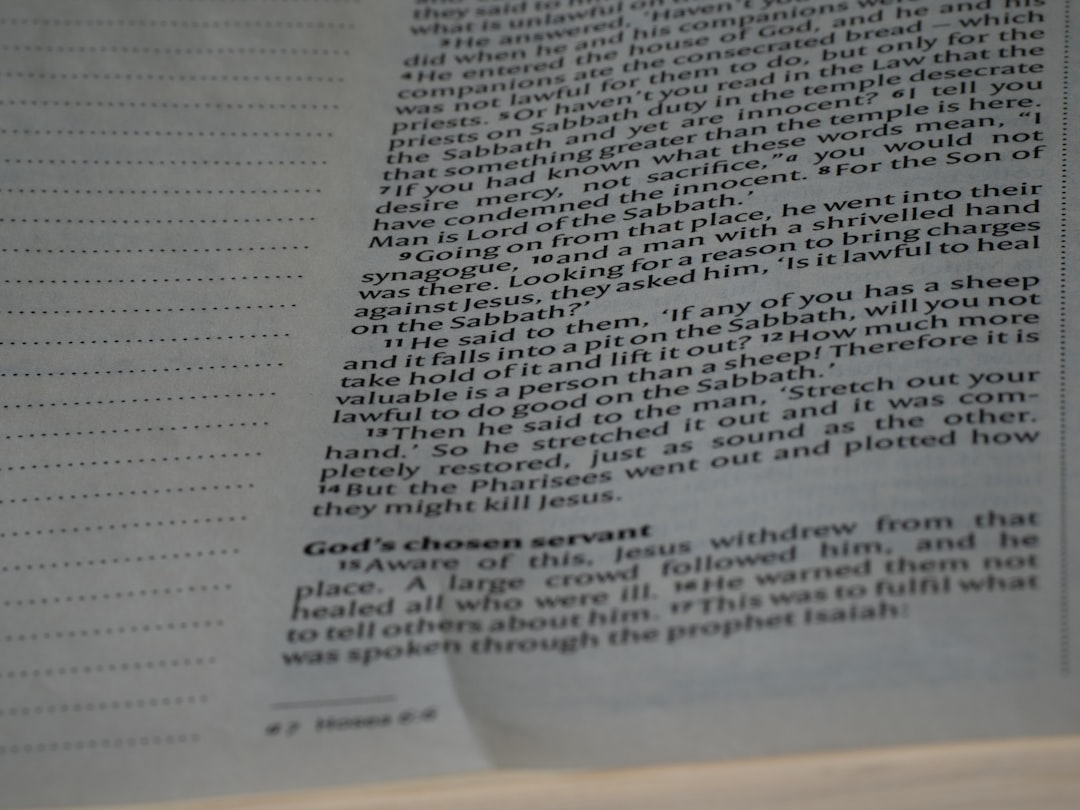 they said to him
what is unlawful on
³He answered, 'Haven't you
did when he and his companions were
⁴He entered the house of God, and he and his
companions ate the consecrated bread – which
was not lawful for them to do, but only for the
priests. ⁵Or haven't you read in the Law that the
priests on Sabbath duty in the temple desecrate
the Sabbath and yet are innocent? ⁶I tell you
that something greater than the temple is here.
⁷If you had known what these words mean, "I
desire mercy, not sacrifice,"ᵃ you would not
have condemned the innocent. ⁸For the Son of
Man is Lord of the Sabbath.'
⁹Going on from that place, he went into their
synagogue, ¹⁰and a man with a shrivelled hand
was there. Looking for a reason to bring charges
against Jesus, they asked him, 'Is it lawful to heal
on the Sabbath?'
¹¹He said to them, 'If any of you has a sheep
and it falls into a pit on the Sabbath, will you not
take hold of it and lift it out? ¹²How much more
valuable is a person than a sheep! Therefore it is
lawful to do good on the Sabbath.'
¹³Then he said to the man, 'Stretch out your
hand.' So he stretched it out and it was com-
pletely restored, just as sound as the other.
¹⁴But the Pharisees went out and plotted how
they might kill Jesus.
God's chosen servant
¹⁵Aware of this, Jesus withdrew from that
place. A large crowd followed him, and he
healed all who were ill. ¹⁶He warned them not
to tell others about him. ¹⁷This was to fulfil what
was spoken through the prophet Isaiah:
a 7 Hosea 6:6